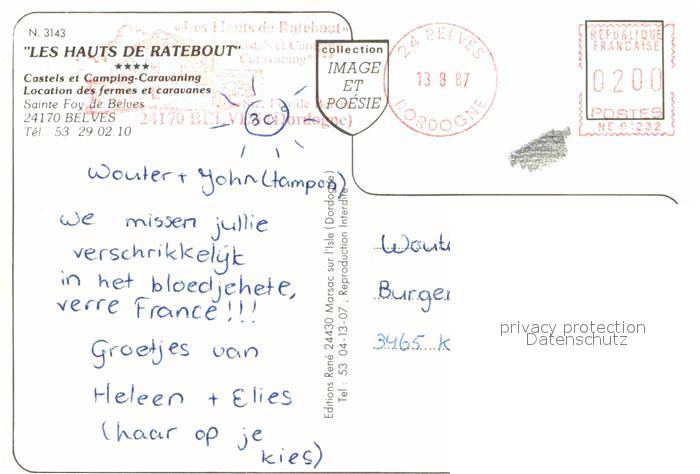 N. 3143
"LES HAUTS DE RATEBOUT"
★★★★
Castels et Camping-Caravaning
Location des fermes et caravanes
Sainte Foy de Belves
24170 BELVES
Tél. 53 29.02.10
«Les Hauts de Ratebout»
24170 BELVES (Dordogne)
30
collection
IMAGE
ET
POÉSIE
24 BELVES
13 8 87
DORDOGNE
REPUBLIQUE
FRANCAISE
0200
POSTES
Wouter + John (tampon)
We missen jullie
verschrikkelijk
in het bloedjehete,
verre France!!!
Groetjes van
Heleen + Elies
(haar op je
kies)
Editions René 24430 Marsac sur l'Isle (Dordogne)
Tel : 53 04-13-07 ; Reproduction Interdite
Wout
Burger
3465 K
privacy protection
Datenschutz